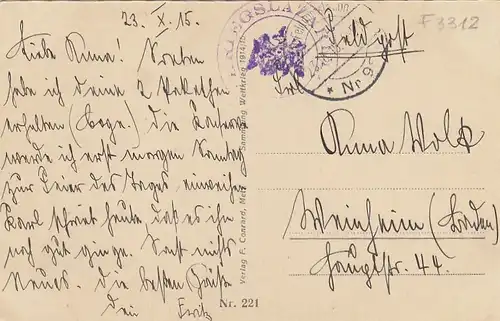 23. X. 15.
Liebe Anna! Soeben
habe ich deine 2 Paketchen
erhalten. die Konserve
werde ich erst morgen Sonntag
zur Feier des Tages einweihen
Karl schreibt heute, daß es ihm
noch gut ginge. Sonst nichts
Neues. die besten Grüße
dein Fritz
KRIEGSLAZAR
Feldpost
F3312
Anna Wolk
Weinheim (Baden)
Hauptstr. 44.
Sammlung Weltkrieg 1914/15
Verlag F. Conrard, Metz
Nr. 221